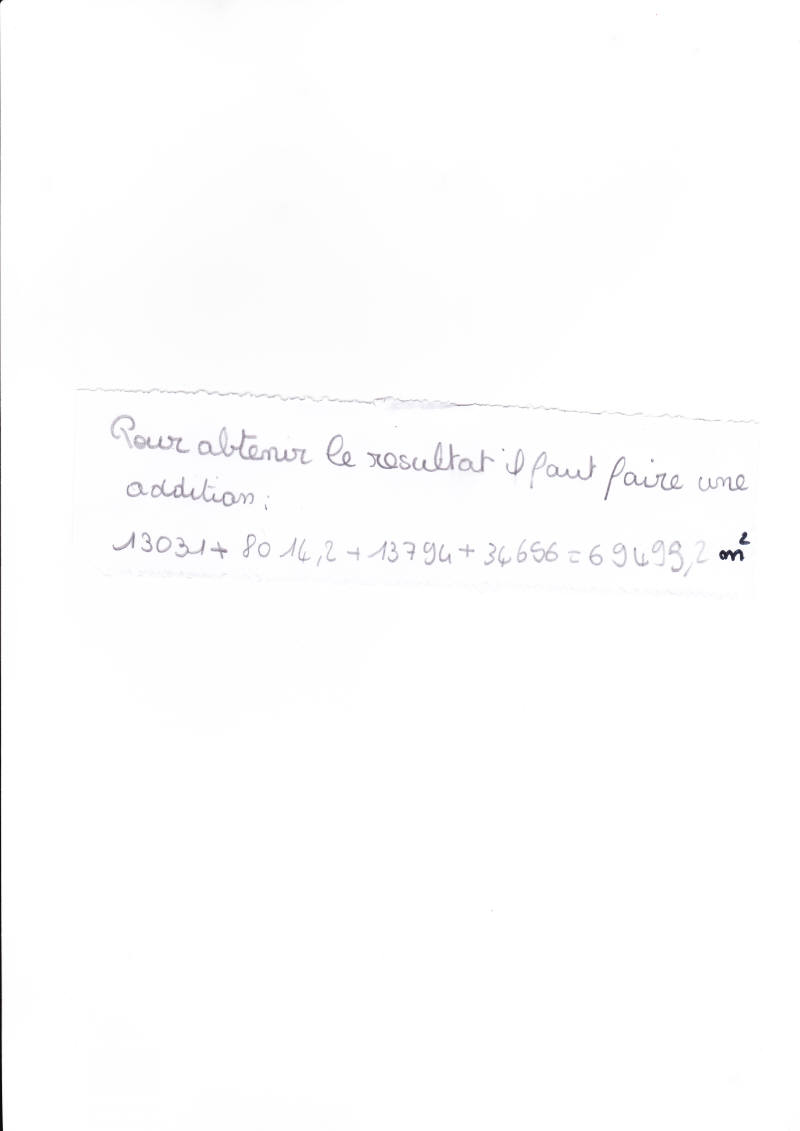 Pour obtenir le resultat il faut faire une
addition :
13031 + 8014,2 + 13794 + 34656 = 69495,2 m²